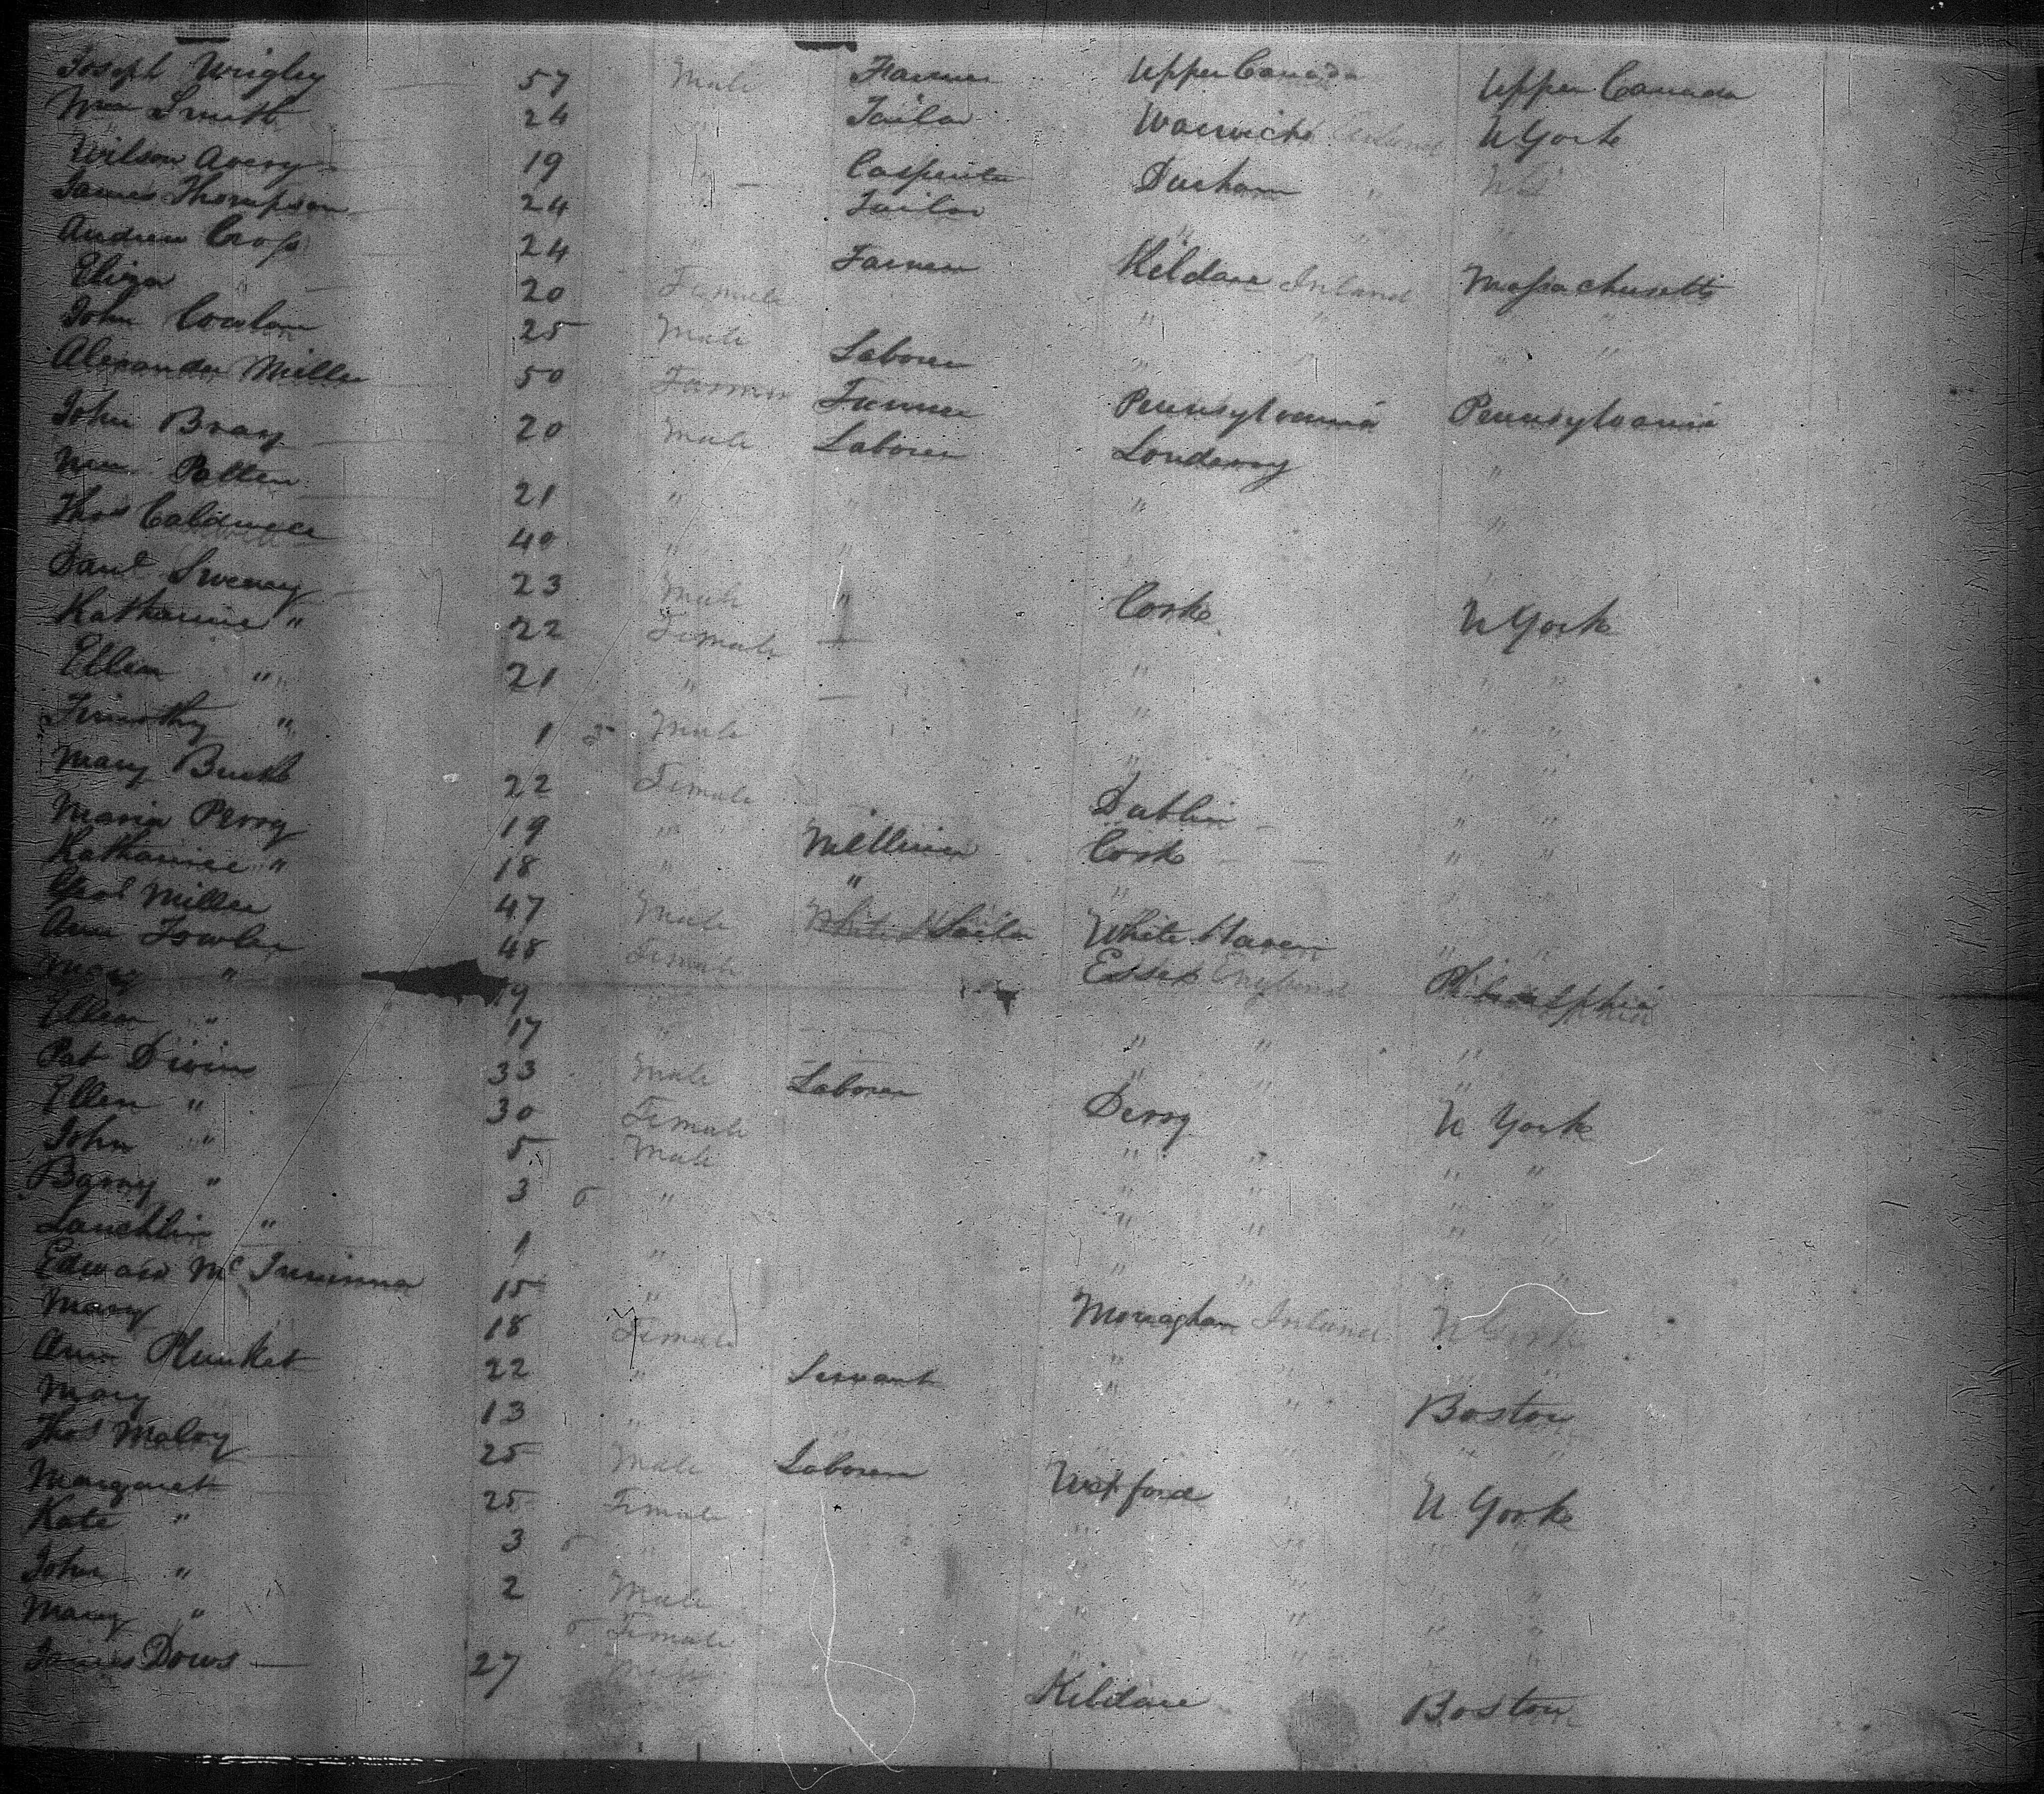 Joseph Wrigley 57 Male Farmer Upper Canada Upper Canada
Wm Smith 24 " Tailor Warwick N York
Wilson Avery 19 " Carpenter Durham "
James Thompson 24 Tailor " "
Andrew Cross 24 Farmer Kildare Ireland Massachusetts
Eliza " 20 Female " " "
John 25 Male Laborer " " "
Alexander Miller 50 Farmer Farmer Pennsylvania Pennsylvania
John Bray 20 Male Laborer Londerry "
Wm Patten 21 " " " "
Thos Caldwell 40 " " " "
Danl Sweeney 23 Male " Cork N York
Katharine " 22 Female " " "
Ellen " 21 " " " "
Timothy " 1 Male " " "
Mary Burke 22 Female Dublin " "
Maria Perry 19 " Milliner Cork " "
Katharine " 18 " " "
Miller 47 Male Sailor White Haven " "
Ann Fowler 48 Female Essex England Philadelphia
Mary " 19 " " " "
Ellen " 17 " " " "
Pat Divin 33 Male Laborer Derry N York
Ellen " 30 Female " " " "
John " 5 Male " " " "
Barny " 3 " " " " "
Lauchlin " 1 " " " "
Edward Mc 15 " Monaghan Ireland N York
Mary 18 Female " " " "
Ann Plunket 22 " Servant " " Boston
Mary 13 " " " " "
Thos Maloy 25 Male Laborer Wexford " N York
Margaret 25 Female " " " "
Kate " 3 " " " " "
John " 2 Male " " " "
Mary " Female " " "
James Dows 27 Male Kildare Boston